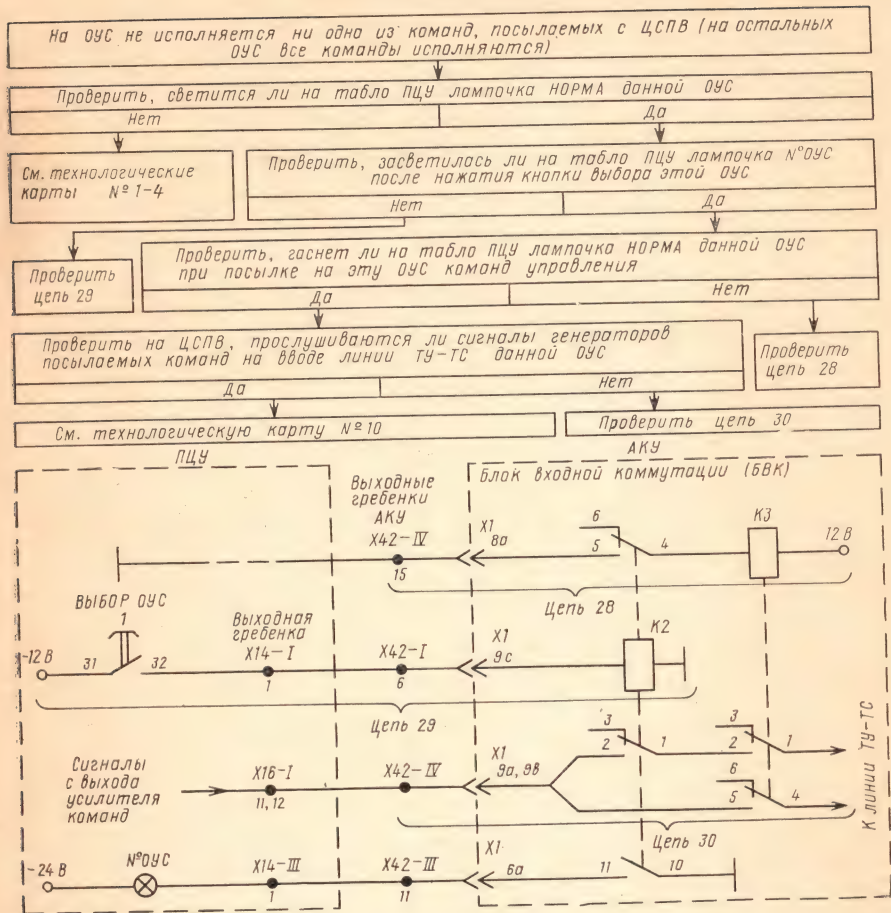 На ОУС не исполняется ни одна из команд, посылаемых с ЦСПВ (на остальных
ОУС все команды исполняются)
Проверить, светится ли на табло ПЦУ лампочка НОРМА данной ОУС
Нет
Да
См. технологические
карты № 1-4
Проверить, засветилась ли на табло ПЦУ лампочка N°ОУС
после нажатия кнопки выбора этой ОУС
Нет
Да
Проверить
цепь 29
Проверить, гаснет ли на табло ПЦУ лампочка НОРМА данной ОУС
при посылке на эту ОУС команд управления
Да
Нет
Проверить на ЦСПВ, прослушиваются ли сигналы генераторов
посылаемых команд на вводе линии ТУ-ТС данной ОУС
Да
Нет
Проверить
цепь 28
См. технологическую карту № 10
Проверить цепь 30
ПЦУ
АКУ
Выходные
гребенки
АКУ
Блок входной коммутации (БВК)
X42-IV
15
X1
8а
6
5
4
К3
12 В
Цепь 28
ВЫБОР ОУС
1
Выходная
гребенка
-12 В
31
32
X14-I
1
X42-I
6
X1
9с
К2
Цепь 29
Сигналы
с выхода
усилителя
команд
X16-I
11, 12
X42-IV
X1
9а, 9в
3
2
1
3
2
1
6
5
4
К линии ТУ-ТС
Цепь 30
-24 В
N°ОУС
X14-III
1
X42-III
11
X1
6а
11
10